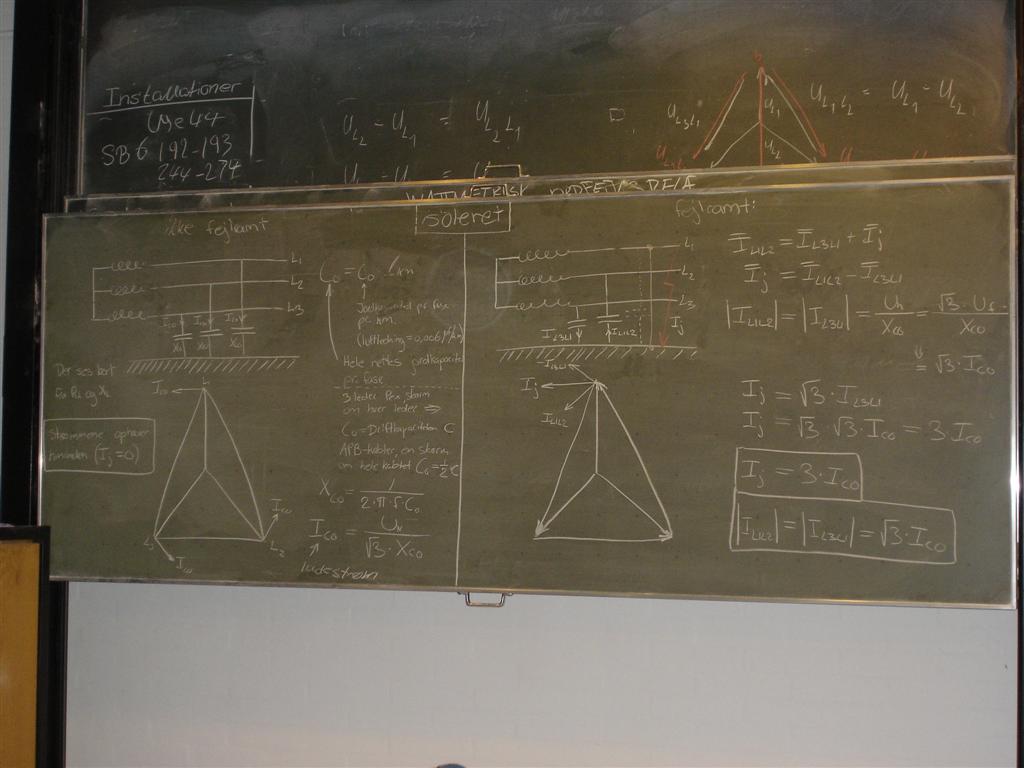 Installationer
Uge 44
SB6 192-193
244-274
U_L2 - U_L1 = U_L2L1
U_L3L1
U_L1
U_L2
U_L1L2 = U_L1 - U_L2
isoleret
ikke fejlramt
L1
L2
L3
I_CO I_CO I_CO
X_CO X_CO X_CO
Der ses bort
fra R_L og X_L
Strømmene ophæver
hinanden (I_j = 0)
I_CO
L3
L2
I_CO
I_CO
C_O = C_O' · l km
pr km.
(luftledning = 0,006 μF/km)
Hele nettets jordkapacitet
pr. fase
3 leder PEX, skærm
om hver leder ⇒
C_O = Driftkapaciteten C
APB-kabler, en skærm
om hele kablet C_O = ½ C
X_CO = 1 / (2·π·f·C_O)
I_CO = U_h / (√3 · X_CO)
ladestrøm
fejlramt:
L1
L2
L3
I_L3L1
I_L1L2
I_j
I_L3L1
I_j
I_L1L2
I_L1L2 = I_L3L1 + I_j
I_j = I_L1L2 - I_L3L1
|I_L1L2| = |I_L3L1| = U_h / X_CO = √3 · U_f / X_CO
= √3 · I_CO
I_j = √3 · I_L3L1
I_j = √3 · √3 · I_CO = 3 · I_CO
I_j = 3 · I_CO
|I_L1L2| = |I_L3L1| = √3 · I_CO